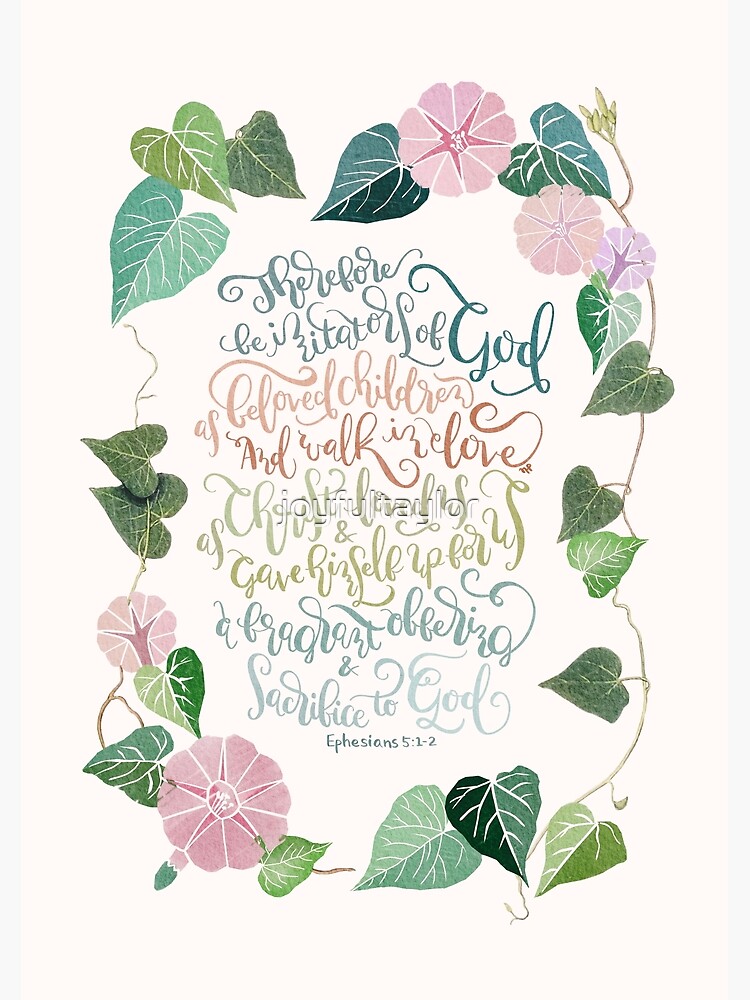 Therefore
be imitators of God
as beloved children
And walk in love
as Christ loved us
&
Gave himself up for us
a fragrant offering
&
Sacrifice to God
Ephesians 5:1-2
joyfultaylor